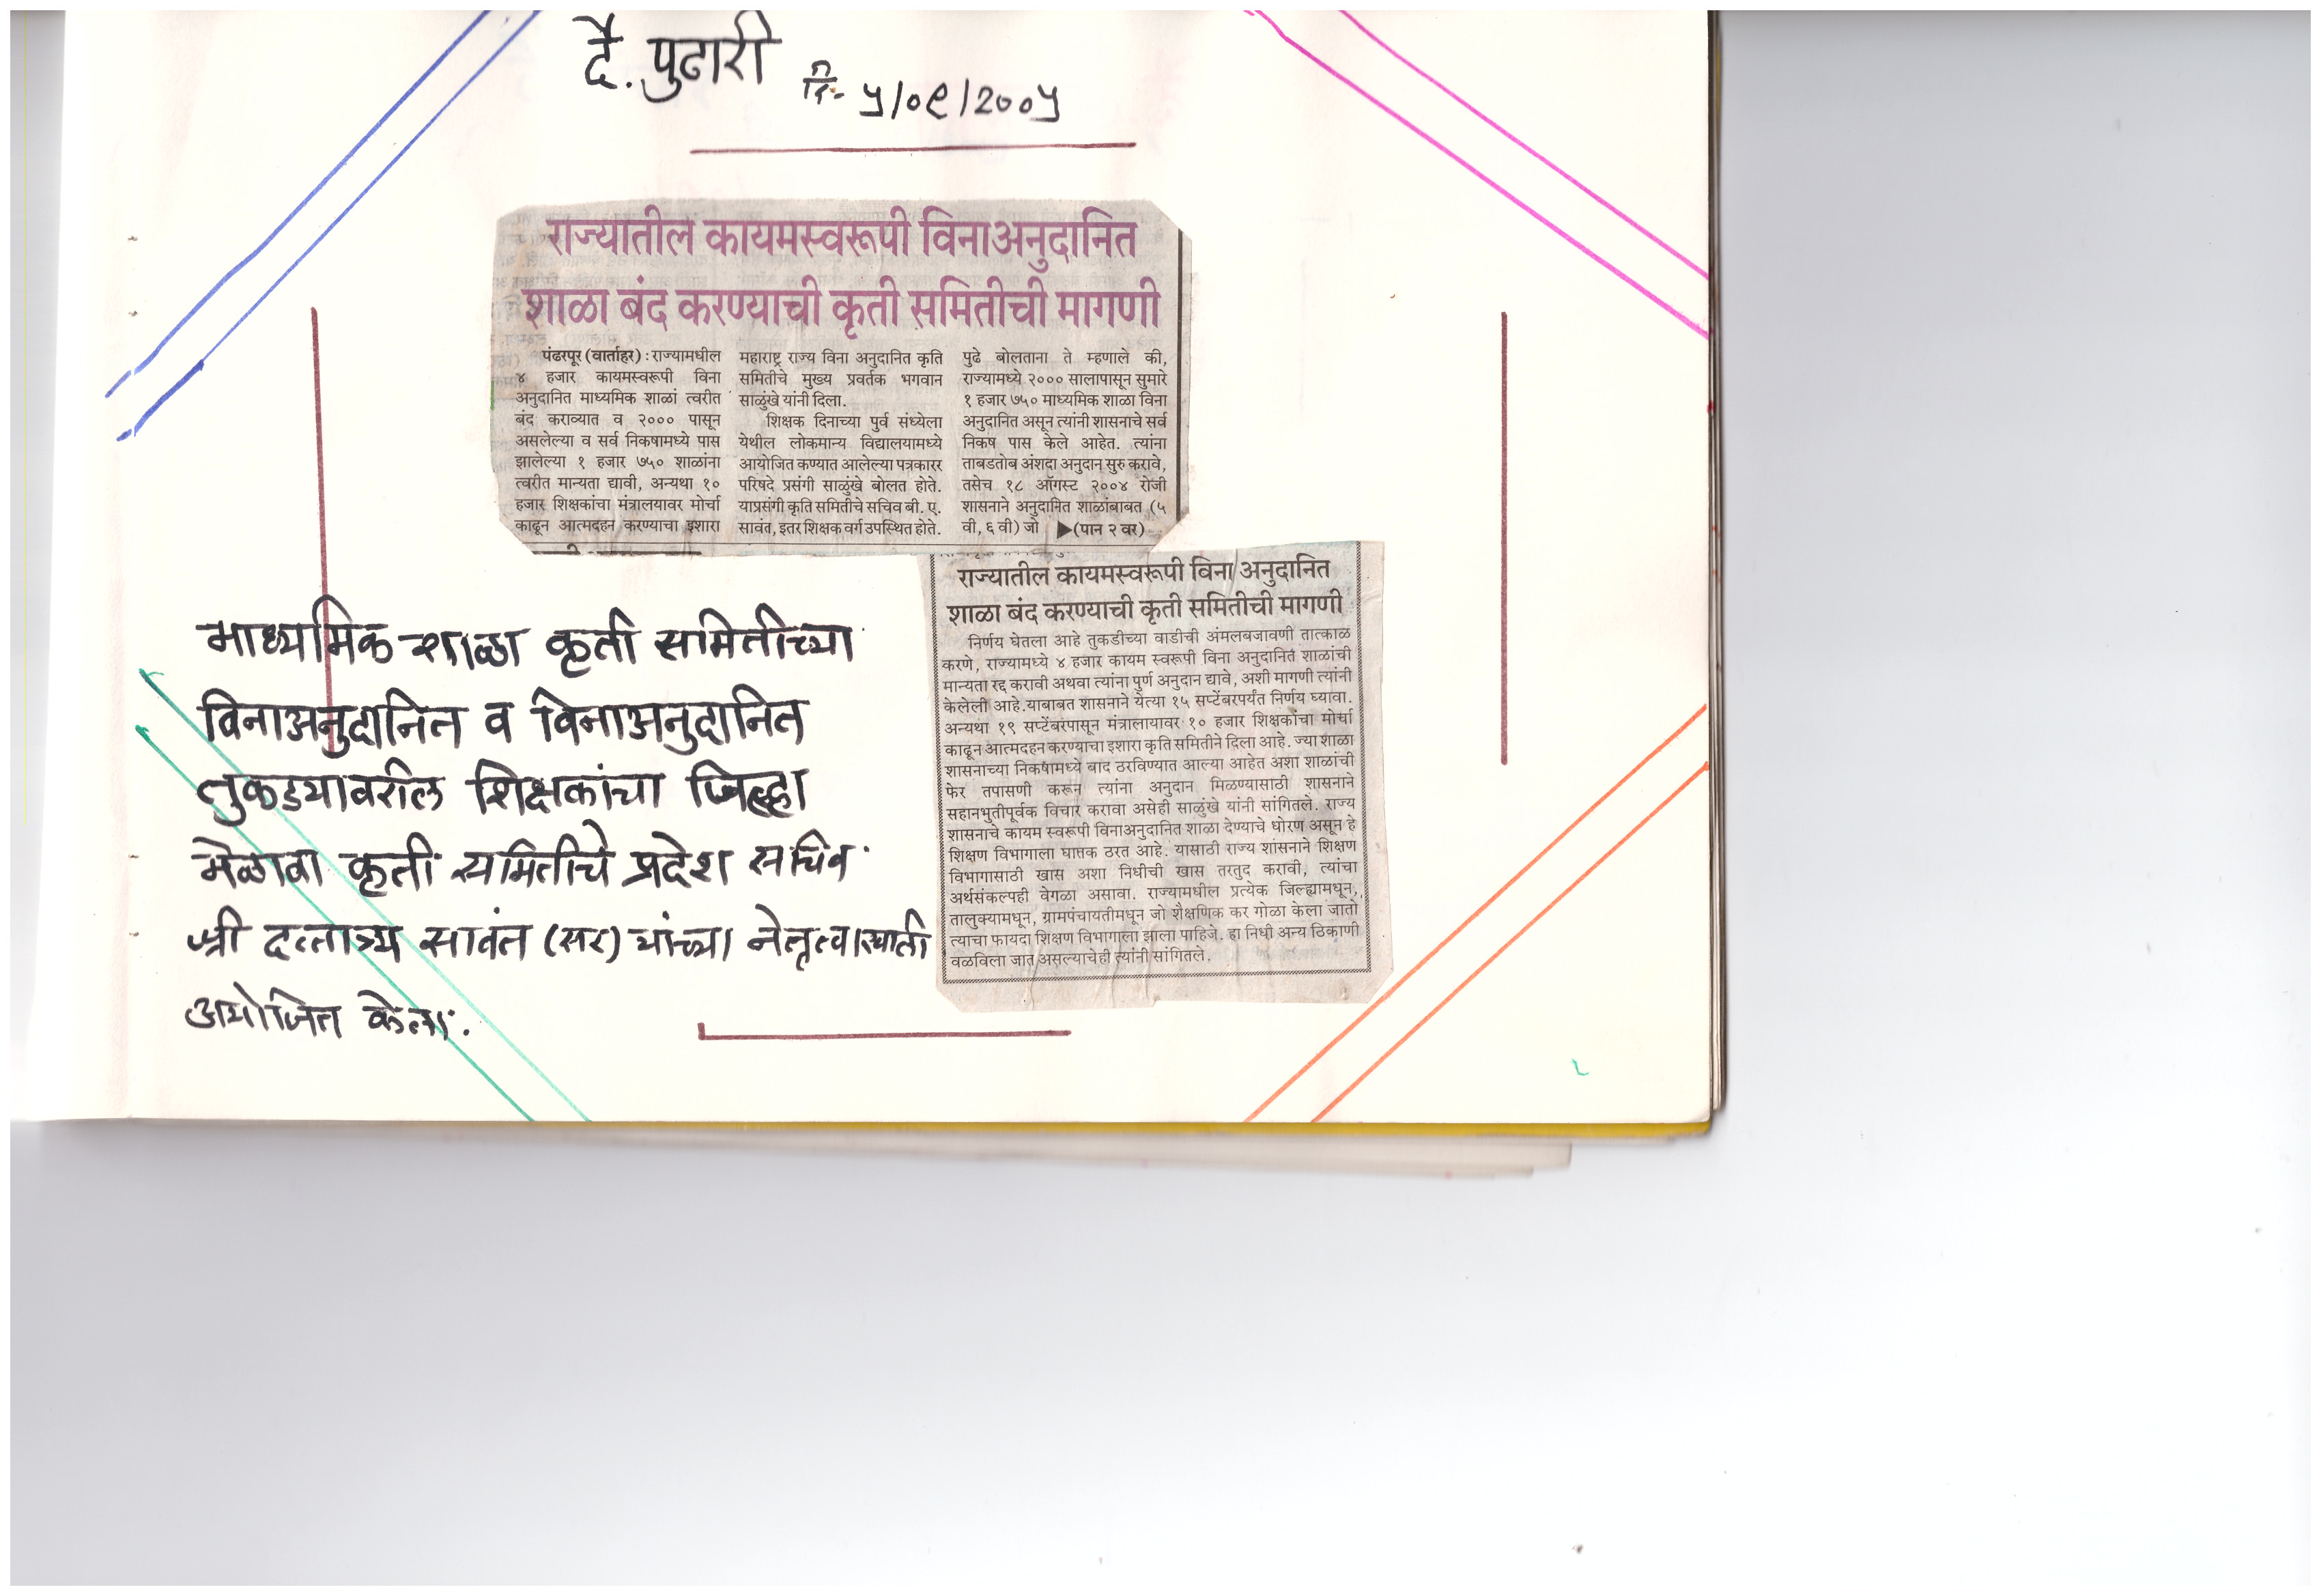 दै. पुढारी
दि- ५/०९/२००५
राज्यातील कायमस्वरूपी विनाअनुदानित
शाळा बंद करण्याची कृती समितीची मागणी
पंढरपूर (वार्ताहर) : राज्यामधील
४ हजार कायमस्वरूपी विना
अनुदानित माध्यमिक शाळां त्वरीत
बंद कराव्यात व २००० पासून
असलेल्या व सर्व निकषामध्ये पास
झालेल्या १ हजार ७५० शाळांना
त्वरीत मान्यता द्यावी, अन्यथा १०
हजार शिक्षकांचा मंत्रालयावर मोर्चा
काढून आत्मदहन करण्याचा इशारा
महाराष्ट्र राज्य विना अनुदानित कृति
समितीचे मुख्य प्रवर्तक भगवान
साळुंखे यांनी दिला.
शिक्षक दिनाच्या पुर्व संध्येला
येथील लोकमान्य विद्यालयामध्ये
आयोजित कण्यात आलेल्या पत्रकारर
परिषदे प्रसंगी साळुंखे बोलत होते.
याप्रसंगी कृति समितीचे सचिव बी. ए.
सावंत, इतर शिक्षक वर्ग उपस्थित होते.
पुढे बोलताना ते म्हणाले की,
राज्यामध्ये २००० सालापासून सुमारे
१ हजार ७५० माध्यमिक शाळा विना
अनुदानित असून त्यांनी शासनाचे सर्व
निकष पास केले आहेत. त्यांना
ताबडतोब अंशदा अनुदान सुरु करावे,
तसेच १८ ऑगस्ट २००४ रोजी
शासनाने अनुदानित शाळांबाबत (५
वी, ६ वी) जो ▶(पान २ वर)
राज्यातील कायमस्वरूपी विना अनुदानित
शाळा बंद करण्याची कृती समितीची मागणी
निर्णय घेतला आहे तुकडीच्या वाडीची अंमलबजावणी तात्काळ
करणे, राज्यामध्ये ४ हजार कायम स्वरूपी विना अनुदानित शाळांची
मान्यता रद्द करावी अथवा त्यांना पुर्ण अनुदान द्यावे, अशी मागणी त्यांनी
केलेली आहे.याबाबत शासनाने येत्या १५ सप्टेंबरपर्यंत निर्णय घ्यावा.
अन्यथा १९ सप्टेंबरपासून मंत्रालायावर १० हजार शिक्षकांचा मोर्चा
काढून आत्मदहन करण्याचा इशारा कृति समितीने दिला आहे. ज्या शाळा
शासनाच्या निकषामध्ये बाद ठरविण्यात आल्या आहेत अशा शाळांची
फेर तपासणी करून त्यांना अनुदान मिळण्यासाठी शासनाने
सहानभुतीपूर्वक विचार करावा असेही साळुंखे यांनी सांगितले. राज्य
शासनाचे कायम स्वरूपी विनाअनुदानित शाळा देण्याचे धोरण असून हे
शिक्षण विभागाला घातक ठरत आहे. यासाठी राज्य शासनाने शिक्षण
विभागासाठी खास अशा निधीची खास तरतुद करावी, त्यांचा
अर्थसंकल्पही वेगळा असावा. राज्यामधील प्रत्येक जिल्ह्यामधून,
तालुक्यामधून, ग्रामपंचायतीमधून जो शैक्षणिक कर गोळा केला जातो
त्याचा फायदा शिक्षण विभागाला झाला पाहिजे. हा निधी अन्य ठिकाणी
वळविला जात असल्याचेही त्यांनी सांगितले.
माध्यमिक शाळा कृती समितीच्या
विनाअनुदानित व विनाअनुदानित
तुकड्यावरील शिक्षकांचा जिल्हा
मेळावा कृती समितीचे प्रदेश सचिव
श्री दत्तात्र्य सावंत (सर) यांच्या नेतृत्वाखाली
आयोजित केला.